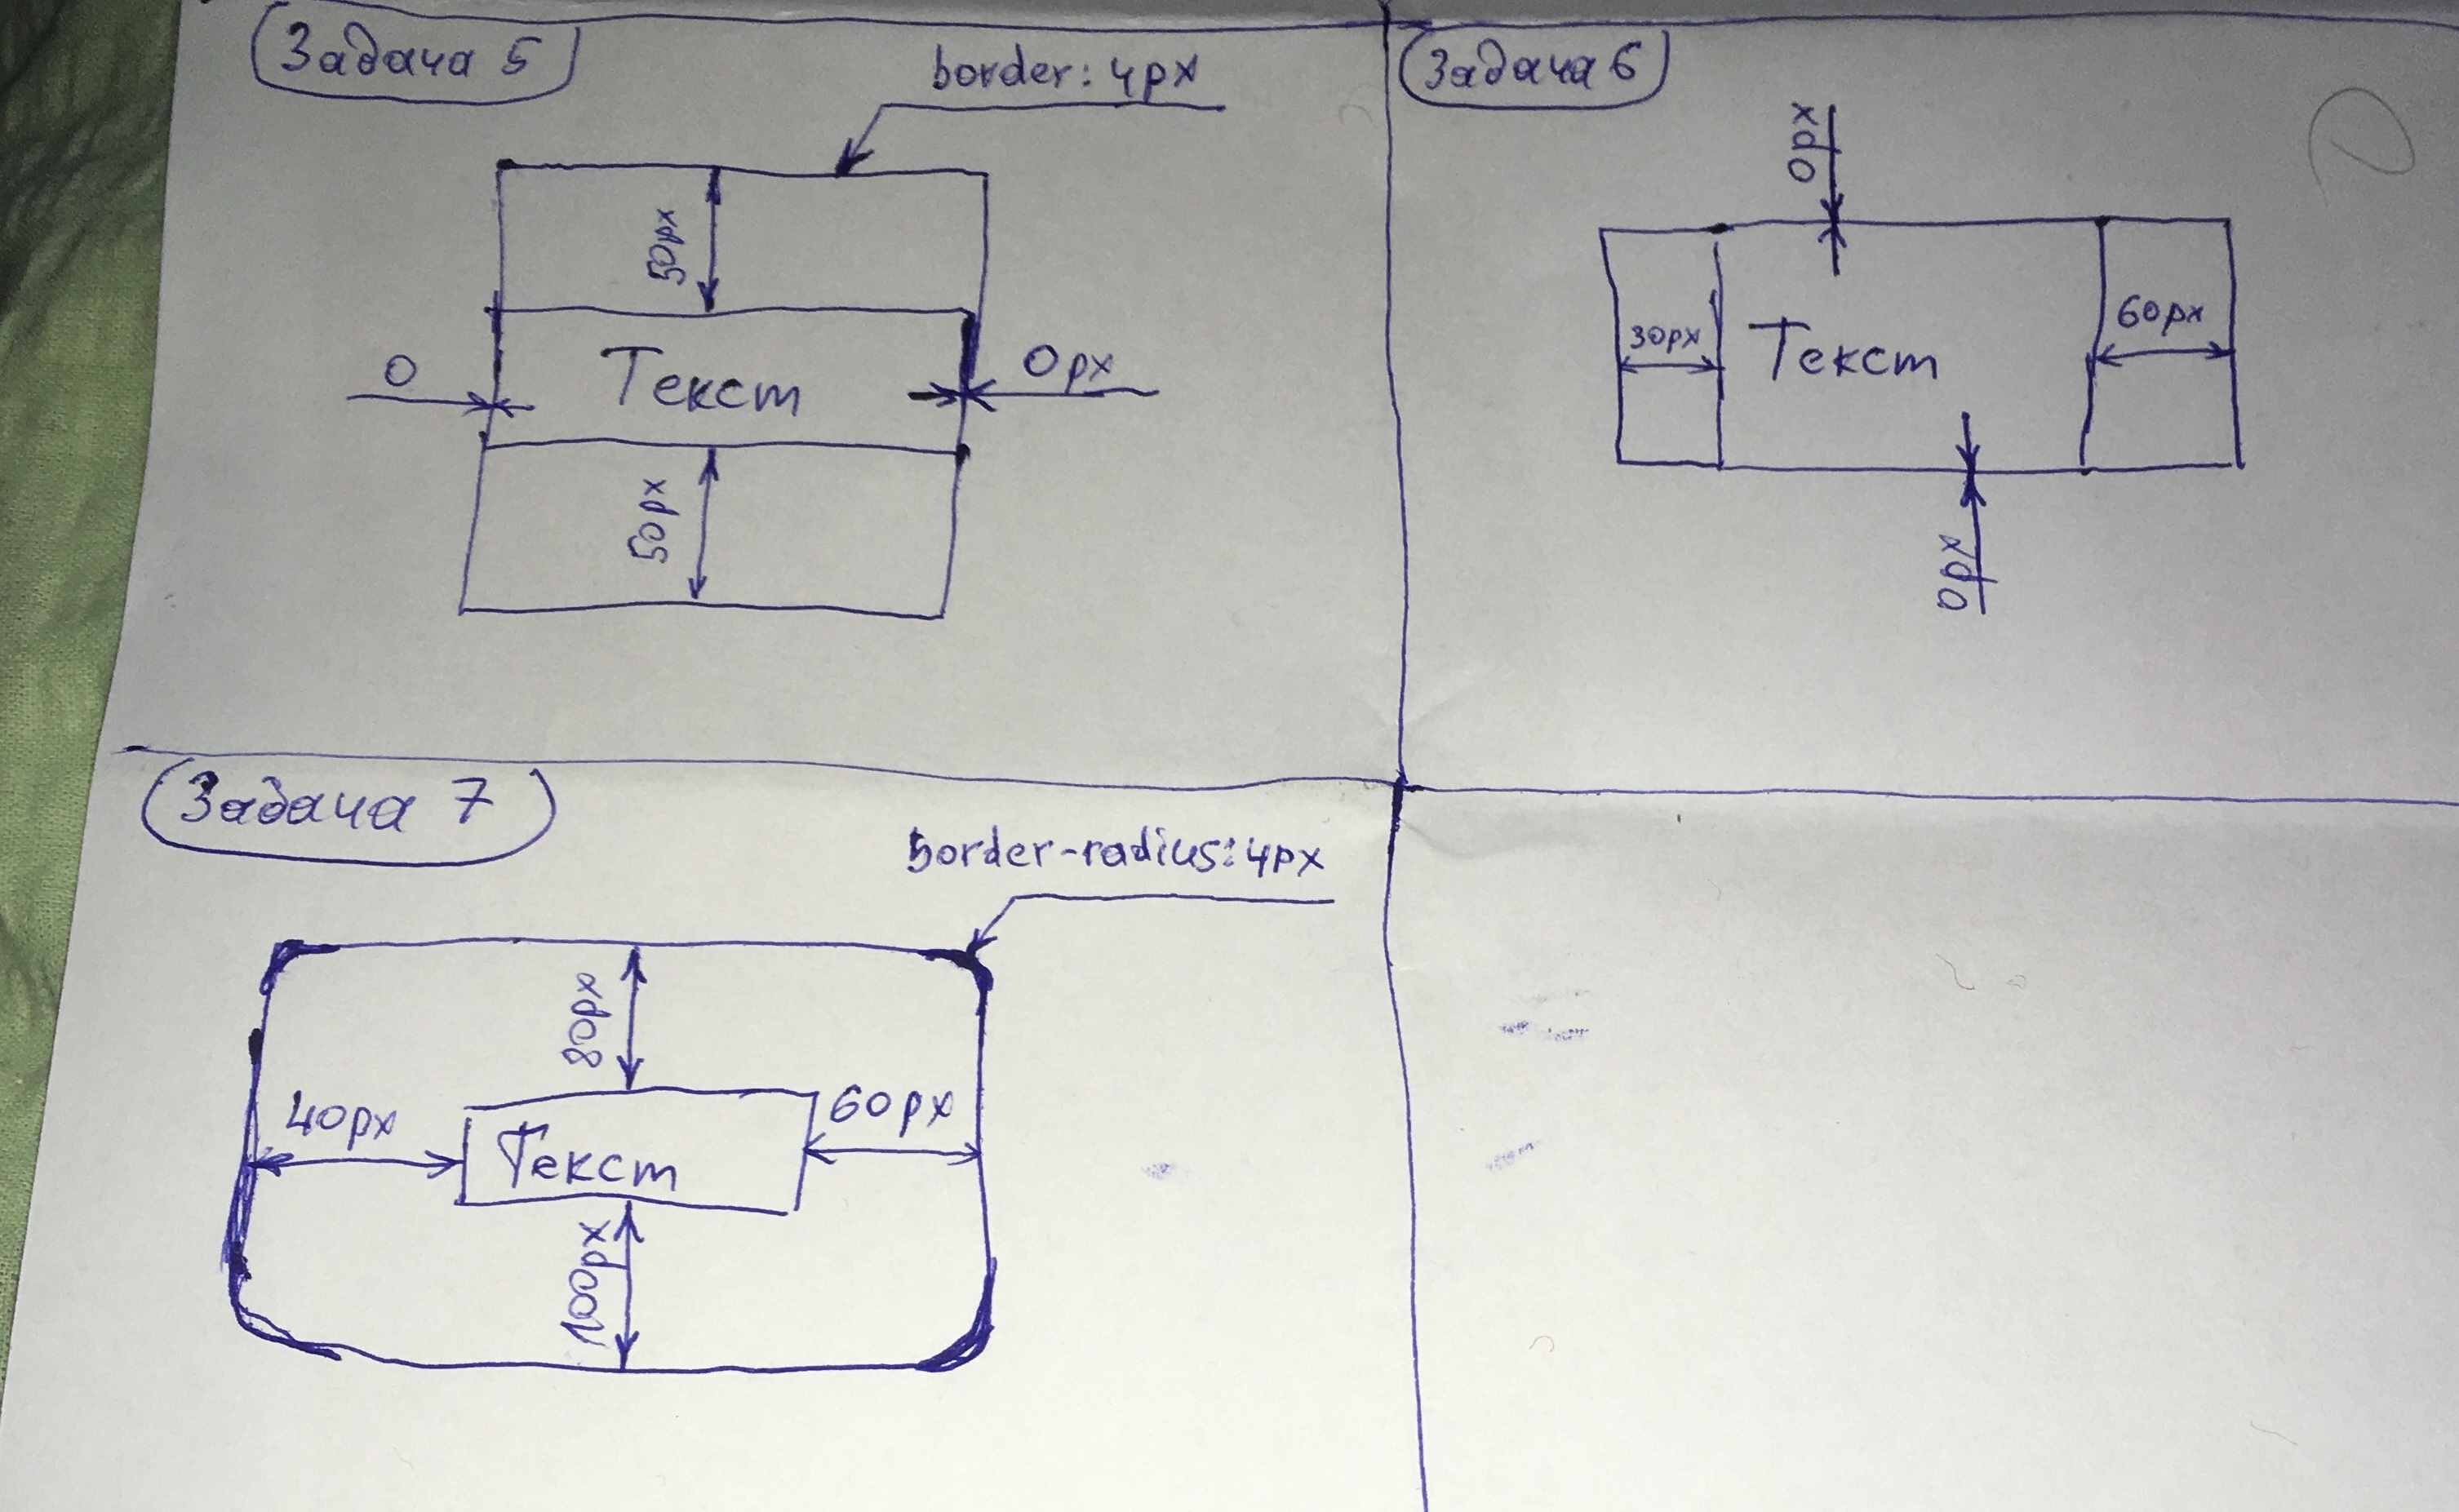 Задача 5
border: 4px
50px
0
Текст
0px
50px
Задача 6
0px
30px
Текст
60px
0px
Задача 7
border-radius: 4px
80px
40px
Текст
60px
100px